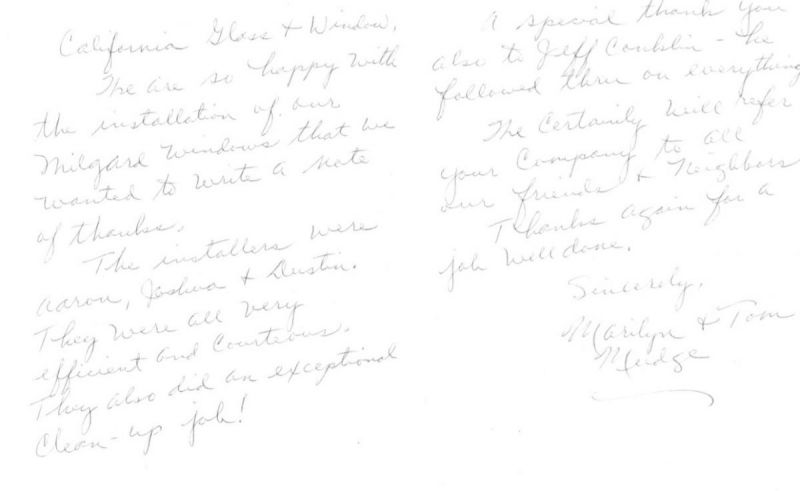 California Glass + Window,
We are so happy with
the installation of our
Milgard Windows that we
wanted to write a note
of thanks.
The installers were
Aaron, Joshua + Dustin.
They were all very
efficient and Courteous.
They also did an exceptional
Clean-up job!
A special thank you
also to Jeff Conklin - he
followed thru on everything
We Certainly Will refer
your Company to all
our friends + Neighbors
Thanks again for a
job Well done.
Sincerely,
Marilyn & Tom
Mudge